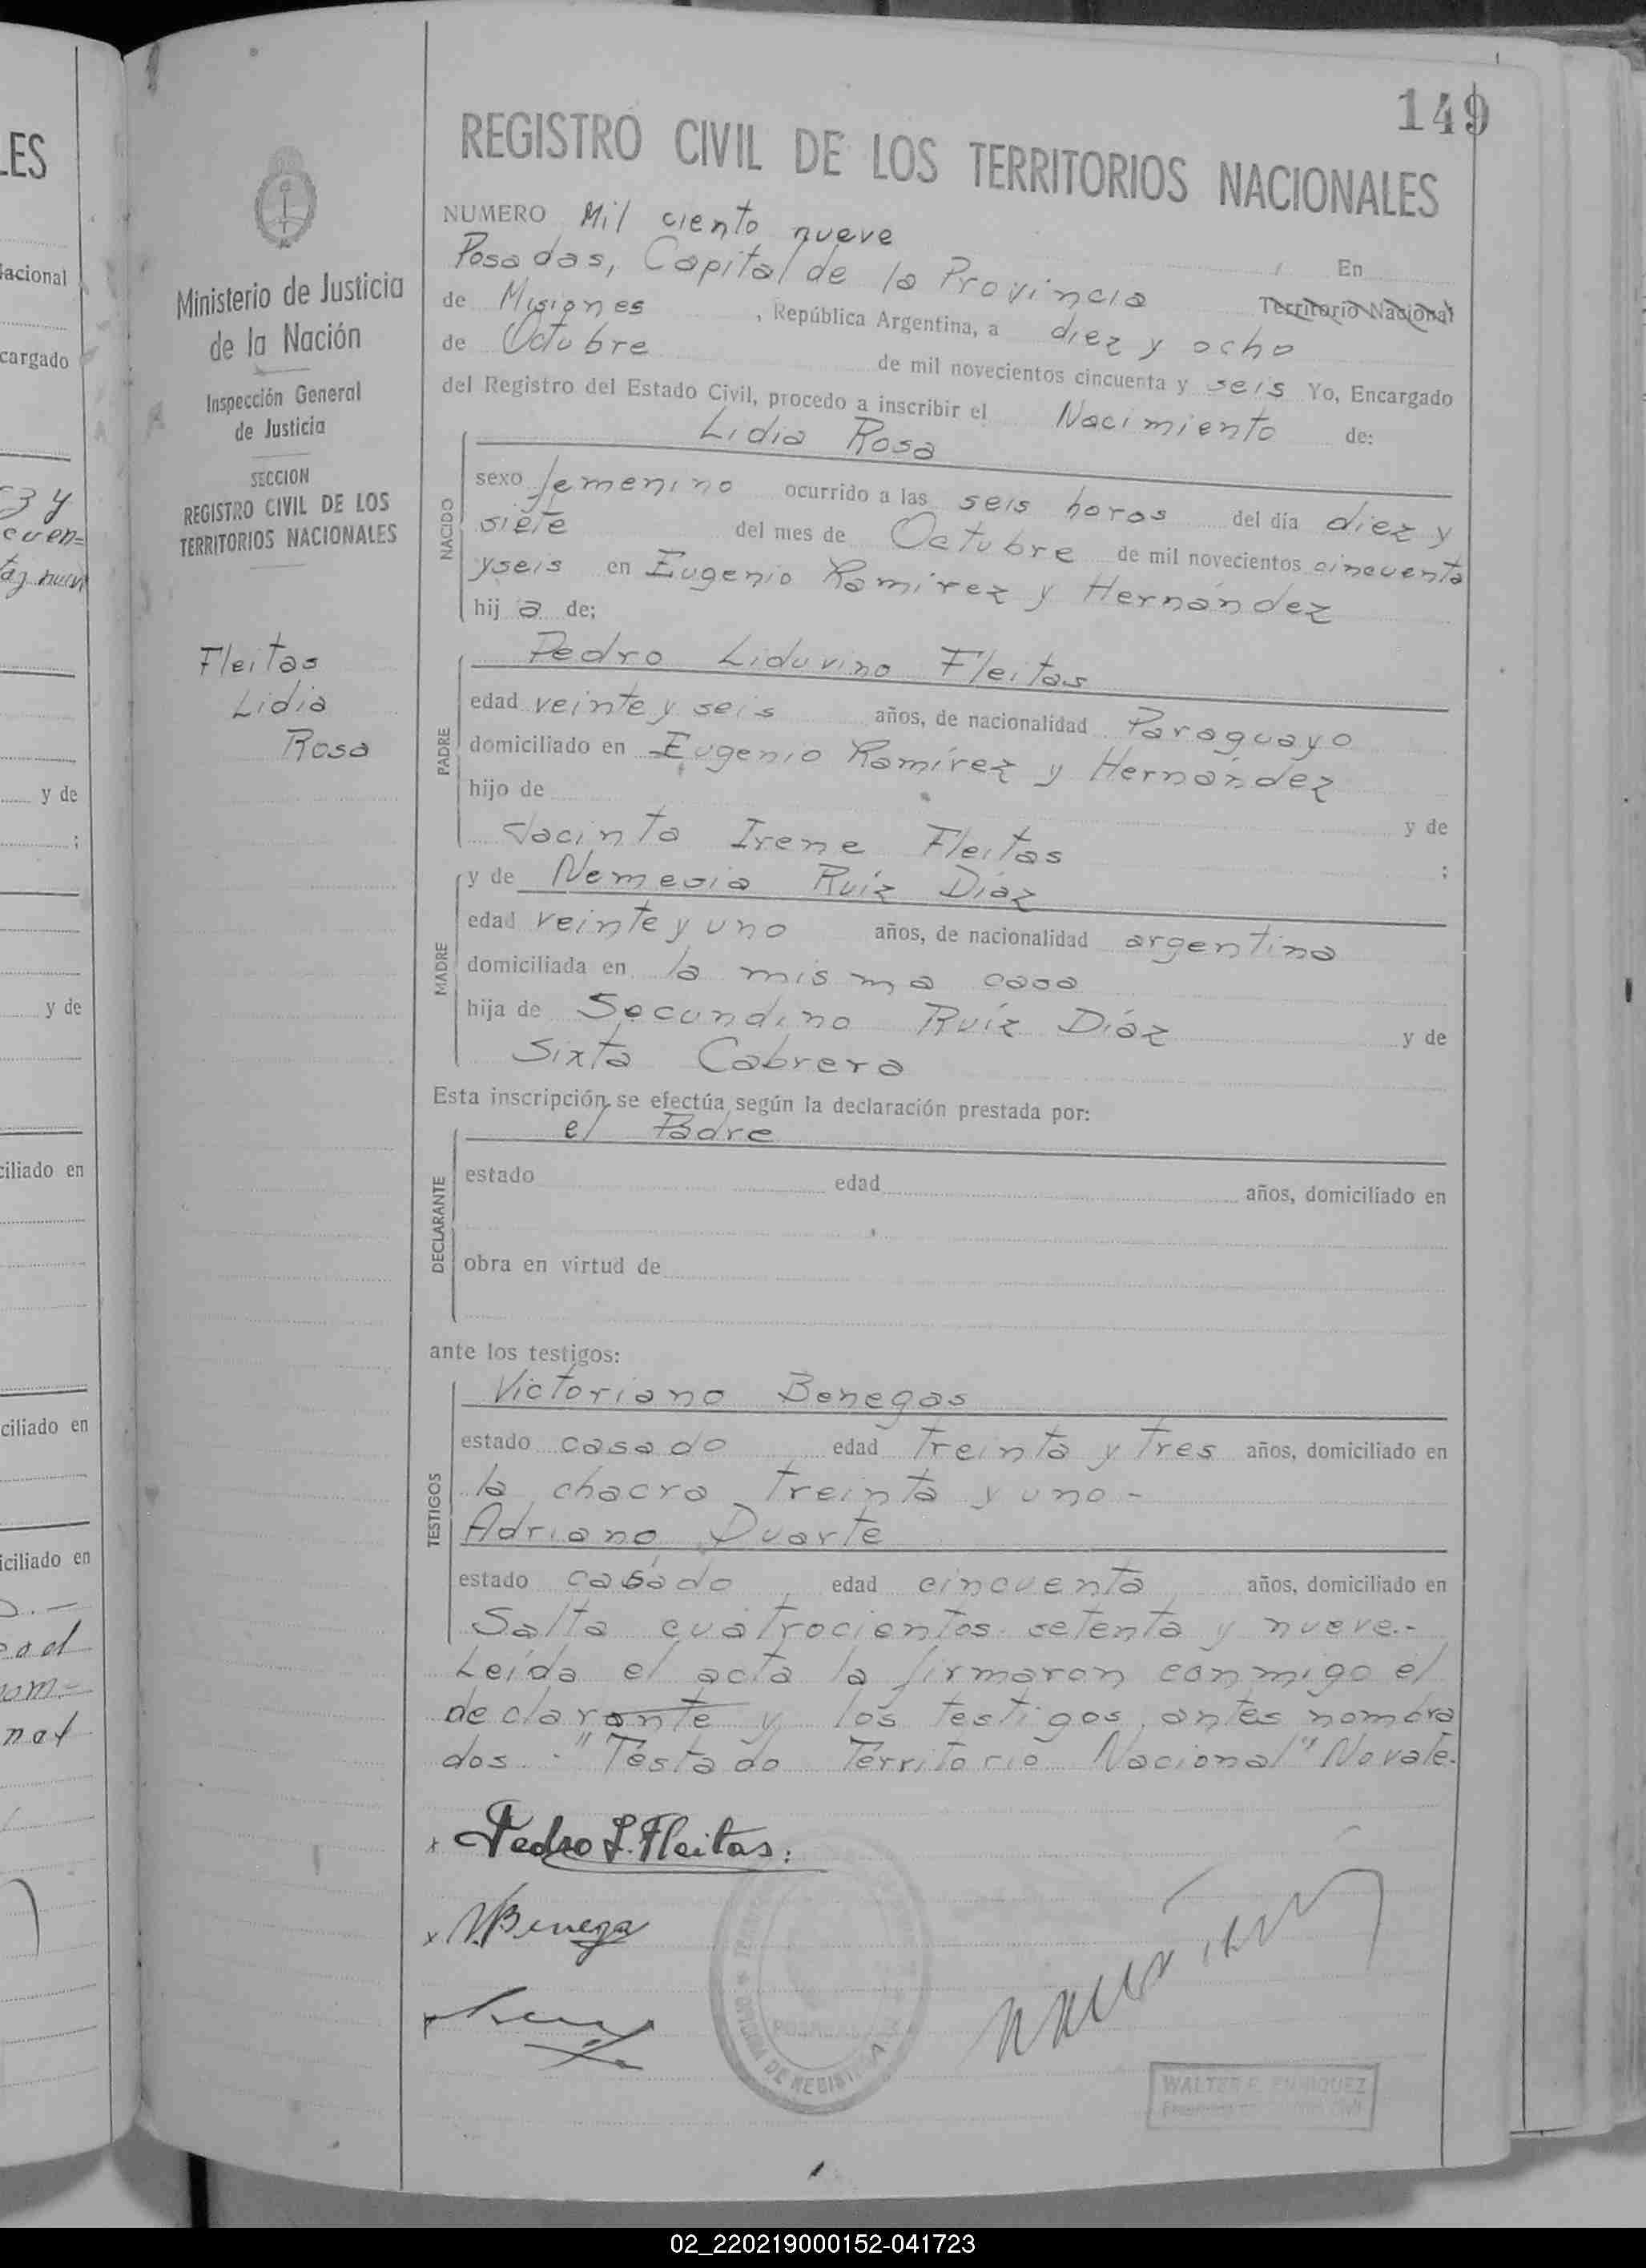 149
REGISTRO CIVIL DE LOS TERRITORIOS NACIONALES
Ministerio de Justicia
de la Nación
Inspección General
de Justicia
SECCION
REGISTRO CIVIL DE LOS
TERRITORIOS NACIONALES
Fleitas
Lidia
Rosa
NUMERO Mil ciento nueve
En
Posadas, Capital de la Provincia
de Misiones, República Argentina, a diez y ocho
Territorio Nacional
de Octubre de mil novecientos cincuenta y seis Yo, Encargado
del Registro del Estado Civil, procedo a inscribir el Nacimiento de:
Lidia Rosa
NACIDO
sexo femenino ocurrido a las seis horas del día diez y
siete del mes de Octubre de mil novecientos cincuenta
y seis en Eugenio Ramírez y Hernández
hij a de;
PADRE
Pedro Liduvino Fleitas
edad veinte y seis años, de nacionalidad Paraguayo
domiciliado en Eugenio Ramírez y Hernández
hijo de y de
Jacinta Irene Fleitas ;
MADRE
y de Nemesia Ruíz Díaz
edad veinte y uno años, de nacionalidad argentina
domiciliada en la misma casa
hija de Secundino Ruíz Díaz y de
Sixta Cabrera
Esta inscripción se efectúa según la declaración prestada por:
el Padre
DECLARANTE
estado edad años, domiciliado en
obra en virtud de
ante los testigos:
TESTIGOS
Victoriano Benegas
estado casado edad treinta y tres años, domiciliado en
la chacra treinta y uno -
Adriano Duarte
estado casado edad cincuenta años, domiciliado en
Salta cuatrocientos setenta y nueve.-
Leída el acta la firmaron conmigo el
declarante y los testigos antes nombra
dos.- "Testado Territorio Nacional" No vale.
x Pedro L. Fleitas.
x V. Benega
POSADAS
WALTER F. ENRIQUEZ
02_220219000152-041723